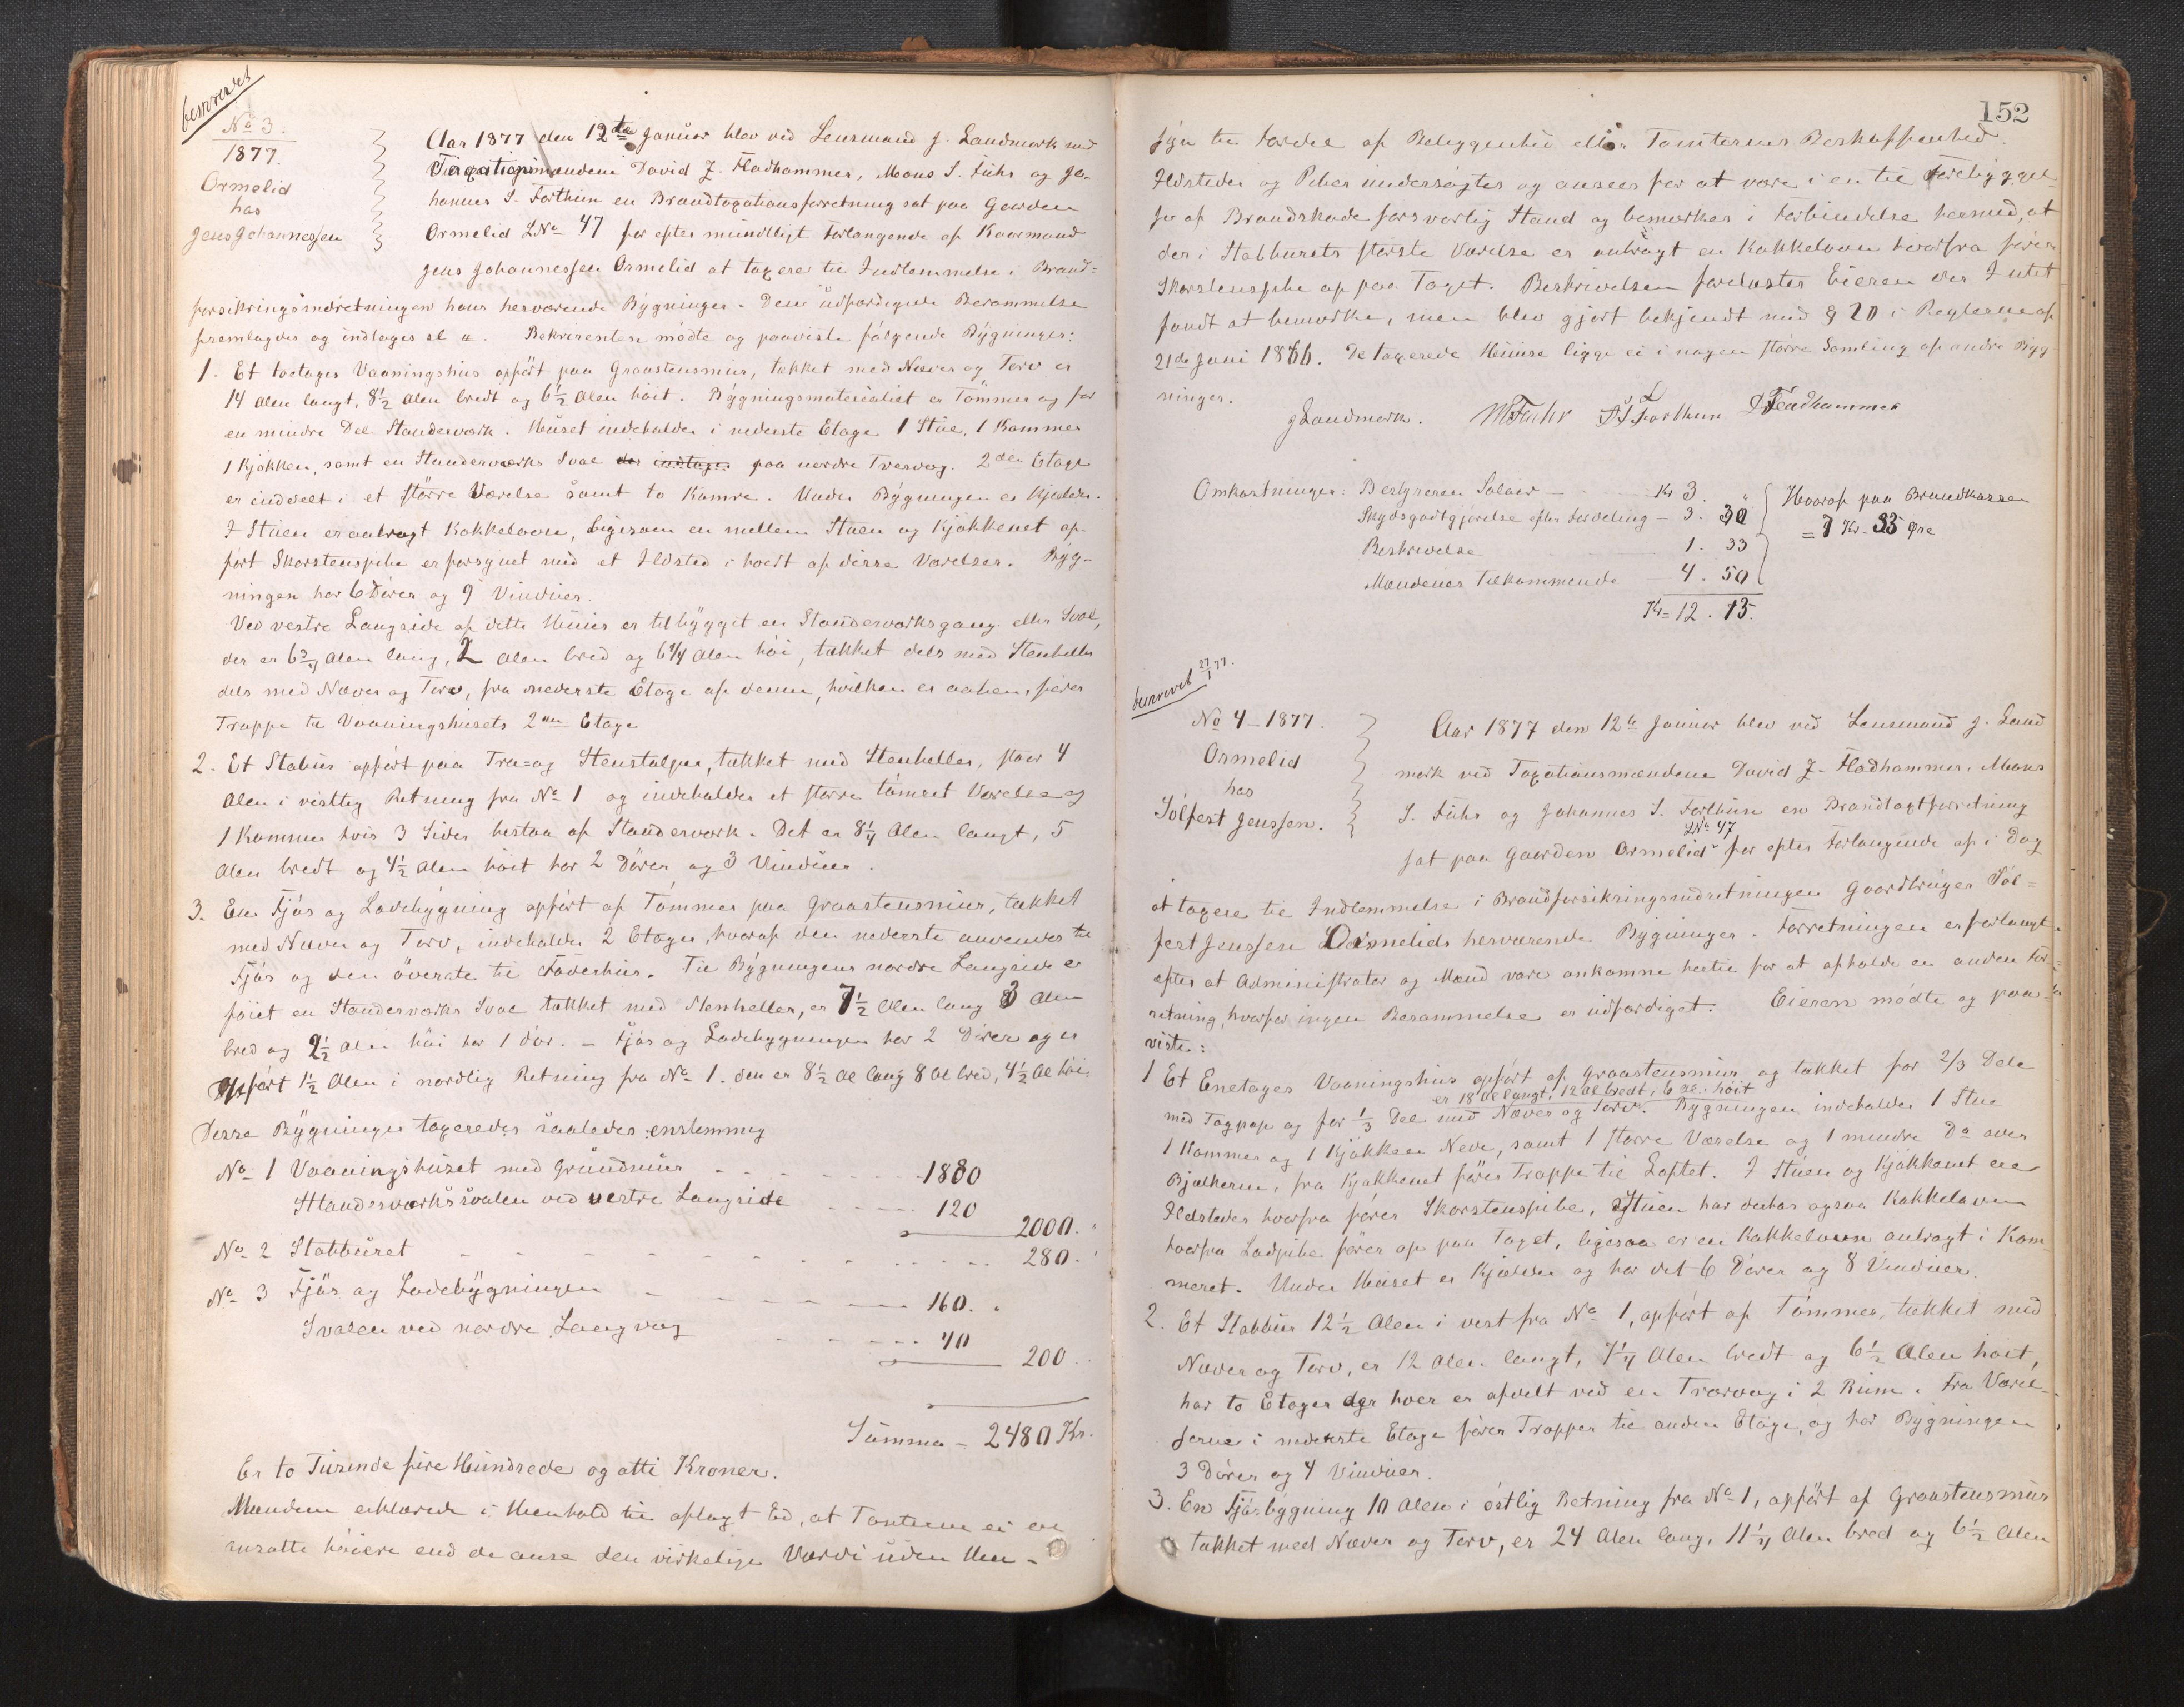 beskrevet
No 3.
1877.
Ormelid
hos
Jens Johannessen
Aar 1877 den 12te Januar blev ved Lensmand J. Landmark med
Taxationsmændene David J. Fladhammer, Mons S. Fuhr og Jo-
hannes S. Forthun en Brandtaxationsforretning sat paa Gaarden
Ormelid LNo 47 for efter mundtligt Forlangende af Kaarmand
Jens Johannessen Ormelid at taxere til Indlemmelse i Brand-
forsikringsindretningen hans herværende Bygninger. Den udfærdigede Berammelse
fremlagdes og indtages sl a. Rekvirenten mødte og paaviste følgende Bygninger:
1. Et toetages Vaaningshus opført paa Graastensmur, tækket med Næver og Torv er
14 Alen langt, 8½ Alen bredt og 6½ Alen høit. Bygningsmaterialiet er Tømmer og for
en mindre Del Standerværk. Huset indeholder i nederste Etage 1 Stue, 1 Kammer
1 Kjøkken, samt en Standerværks Sval der indtages paa nordre Tvervæg. 2den Etage
er inddelt i et større Værelse samt to Kamre. Under Bygningen er Kjælder.
I Stuen er anbragt Kakkelovn, ligesom en mellem Stuen og Kjøkkenet op-
ført Skorstenspibe er forsynet med et Ildsted i hvert af disse Værelser. Byg-
ningen har 6 Dører og 9 Vinduer.
Ved vestre Langside af dette Huus er tilbygget en Standerværksgang eller Sval,
der er 6¾ Alen lang, 2 Alen bred og 6¼ Alen høi, tækket dels med Stenheller
dels med Næver og Torv, fra nederste Etage af denne, hvilken er aaben, fører
Trappe til Vaaningshusets 2den Etage
2. Et Stabur opført paa Træ- og Stenstolper, tækket med Stenheller, staar 4
Alen i vestlig Retning fra No 1 og indeholder et større tømret Værelse og
1 Kammer hvis 3 Sider bestaa af Standerværk. Det er 8¼ Alen langt, 5
Alen bredt og 4½ Alen høit har 2 Dører og 3 Vinduer.
3. En Fjøs og Ladebygning opført af Tømmer paa Graastensmur, tækket
med Næver og Torv, indeholder 2 Etager, hvoraf den nederste anvendes til
Fjøs og den øverste til Foderhus. Til Bygningens nordre Langside er
føiet en Standerværks Sval tækket med Stenheller, er 7½ Alen lang 3 Alen
bred og 2½ Alen høi har 1 dør. – Fjøs og Ladebygningen har 2 Dører og er
opført 1½ Alen i nordlig Retning fra No 1. den er 8½ Al lang 8 Al bred, 4½ Al høi.
Disse Bygninger taxeredes saaledes: enstemmig
No 1 Vaaningshuset med Grundmur 1880
Standerværkssvalen ved vestre Langside 120
2000.
No 2 Stabburet 280.
No 3 Fjøs og Ladebygningen 160.
Svalen ved nordre Langvæg 40
200.
Summa – 2480 Kr.
Er to Tusinde fire Hundrede og otti Kroner.
Mændene erklærede i Henhold til aflagt Ed, at Taxterne ei ere
ansatte høiere end de anse den virkelige Værdi uden Hen-
152
syn til Fordel af Beliggenhed eller Tomternes Beskaffenhed.
Ildsteder og Piber undersøgtes og ansees for at være i en til Forebyggel-
se af Brandskade forsvarlig Stand og bemærkes i Forbindelse hermed, at
der i Stabburets største Værelse er anbragt en Kakkelovn hvorfra fører
Skorstenspibe op paa Taget. Beskrivelsen forelæstes Eieren der Intet
fandt at bemærke, men blev gjort bekjendt med § 20 i Reglerne af
21de Juni 1866. De taxerede Huuse ligge ei i nogen større Samling af andre Byg
ninger.
JLandmark. MSFuhr JSForthun DFladhammer
Omkostninger: Bestyreren Salær Kr 3.
Skydsgodtgjørelse efter Fordeling – 3. 30
Beskrivelse 1. 33
Mændenes Tilkommende 4. 50
Kr= 12. 13.
Hvoraf paa Brandkassen
= 7 Kr. 33 Øre
beskrevet 27/1 77.
No 4 – 1877.
Ormelid
hos
Solfest Jenssen.
Aar 1877 den 12te Januar blev ved Lensmand J. Land
mark ved Taxationsmændene David J. Fladhammer, Mons
S. Fuhr og Johannes S. Forthun en Brandtaxtforretning
sat paa Gaarden Ormelid LNo 47 for efter Forlangende af i Dag
at taxere til Indlemmelse i Brandforsikringsindretningen Gaardbruger Sol-
fest Jenssen Ormelids herværende Bygninger. Forretningen er forlangt
efter at Administrator og Mænd vare ankomne hertil for at afholde en anden For-
retning, hvorfor ingen Berammelse er udfærdiget. Eieren mødte og paa-
viste:
1 Et Enetages Vaaningshus opført af Graastensmur og tækket for 2/3 Dele
er 18 Al langt, 12 Al bredt, 6 Al. høit
med Tagpap og for 1/3 Del med Næver og Torv. Bygningen indeholder 1 Stue
1 Kammer og 1 Kjøkken Nede, samt 1 større Værelse og 1 mindre Do over
Bjælkerne, fra Kjøkkenet fører Trappe til Loftet. I Stuen og Kjøkkenet ere
Ildsteder hvorfra fører Skorstenspibe, Stuen har derhos ogsaa Kakkelovn
hvorfra Ladpibe fører op paa Taget, ligesaa er en Kakkelovn anbragt i Kam
meret. Under Huset er Kjælder og har det 6 Dører og 8 Vinduer.
2. Et Stabbur 12½ Alen i vest fra No 1, opført af Tømmer, tækket med
Næver og Torv, er 12 Alen langt, 7¼ Alen bredt og 6½ Alen høit,
har to Etager der hver er afdelt ved en Tværvæg i 2 Rum. Fra Værel-
serne i nederste Etage fører Trapper til anden Etage, og har Bygningen
3 Dører og 4 Vinduer.
3. En Fjøsbygning 10 Alen i østlig Retning fra No 1, opført af Graastensmur
tækket med Næver og Torv, er 24 Alen lang, 11¼ Alen bred og 6½ Alen